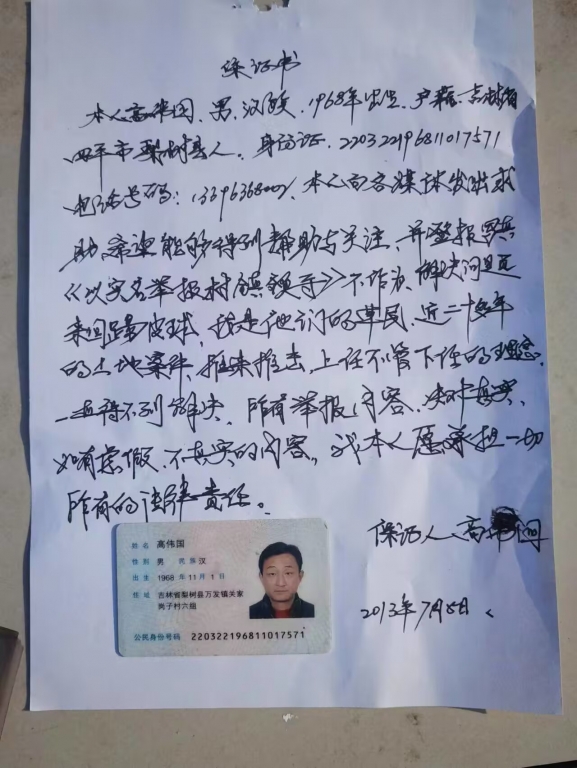 保证书
本人高伟国、男、汉族、1968年出生、户籍、吉林省
四平市梨树县人。身份证、220322196811017571
电话号码：、本人向各媒体发出求
助、希望能够得到帮助与关注、并登报
《以实名举报村镇领导》不作为、解决问题
来回踢皮球、我是他们的草民、近二十多年
的土地案件、推来推去、上任不管下任的理念、
一直得不到解决、所有举报内容、绝对真实、
如有虚假、不真实的内容。我本人愿承担一切
所有的法律责任。
保证人、高国
2013年7月8日
姓名 高伟国
性别 男 民族 汉
出生 1968 年 11 月 1 日
住址 吉林省梨树县万发镇关家
岗子村六组
公民身份号码 220322196811017571